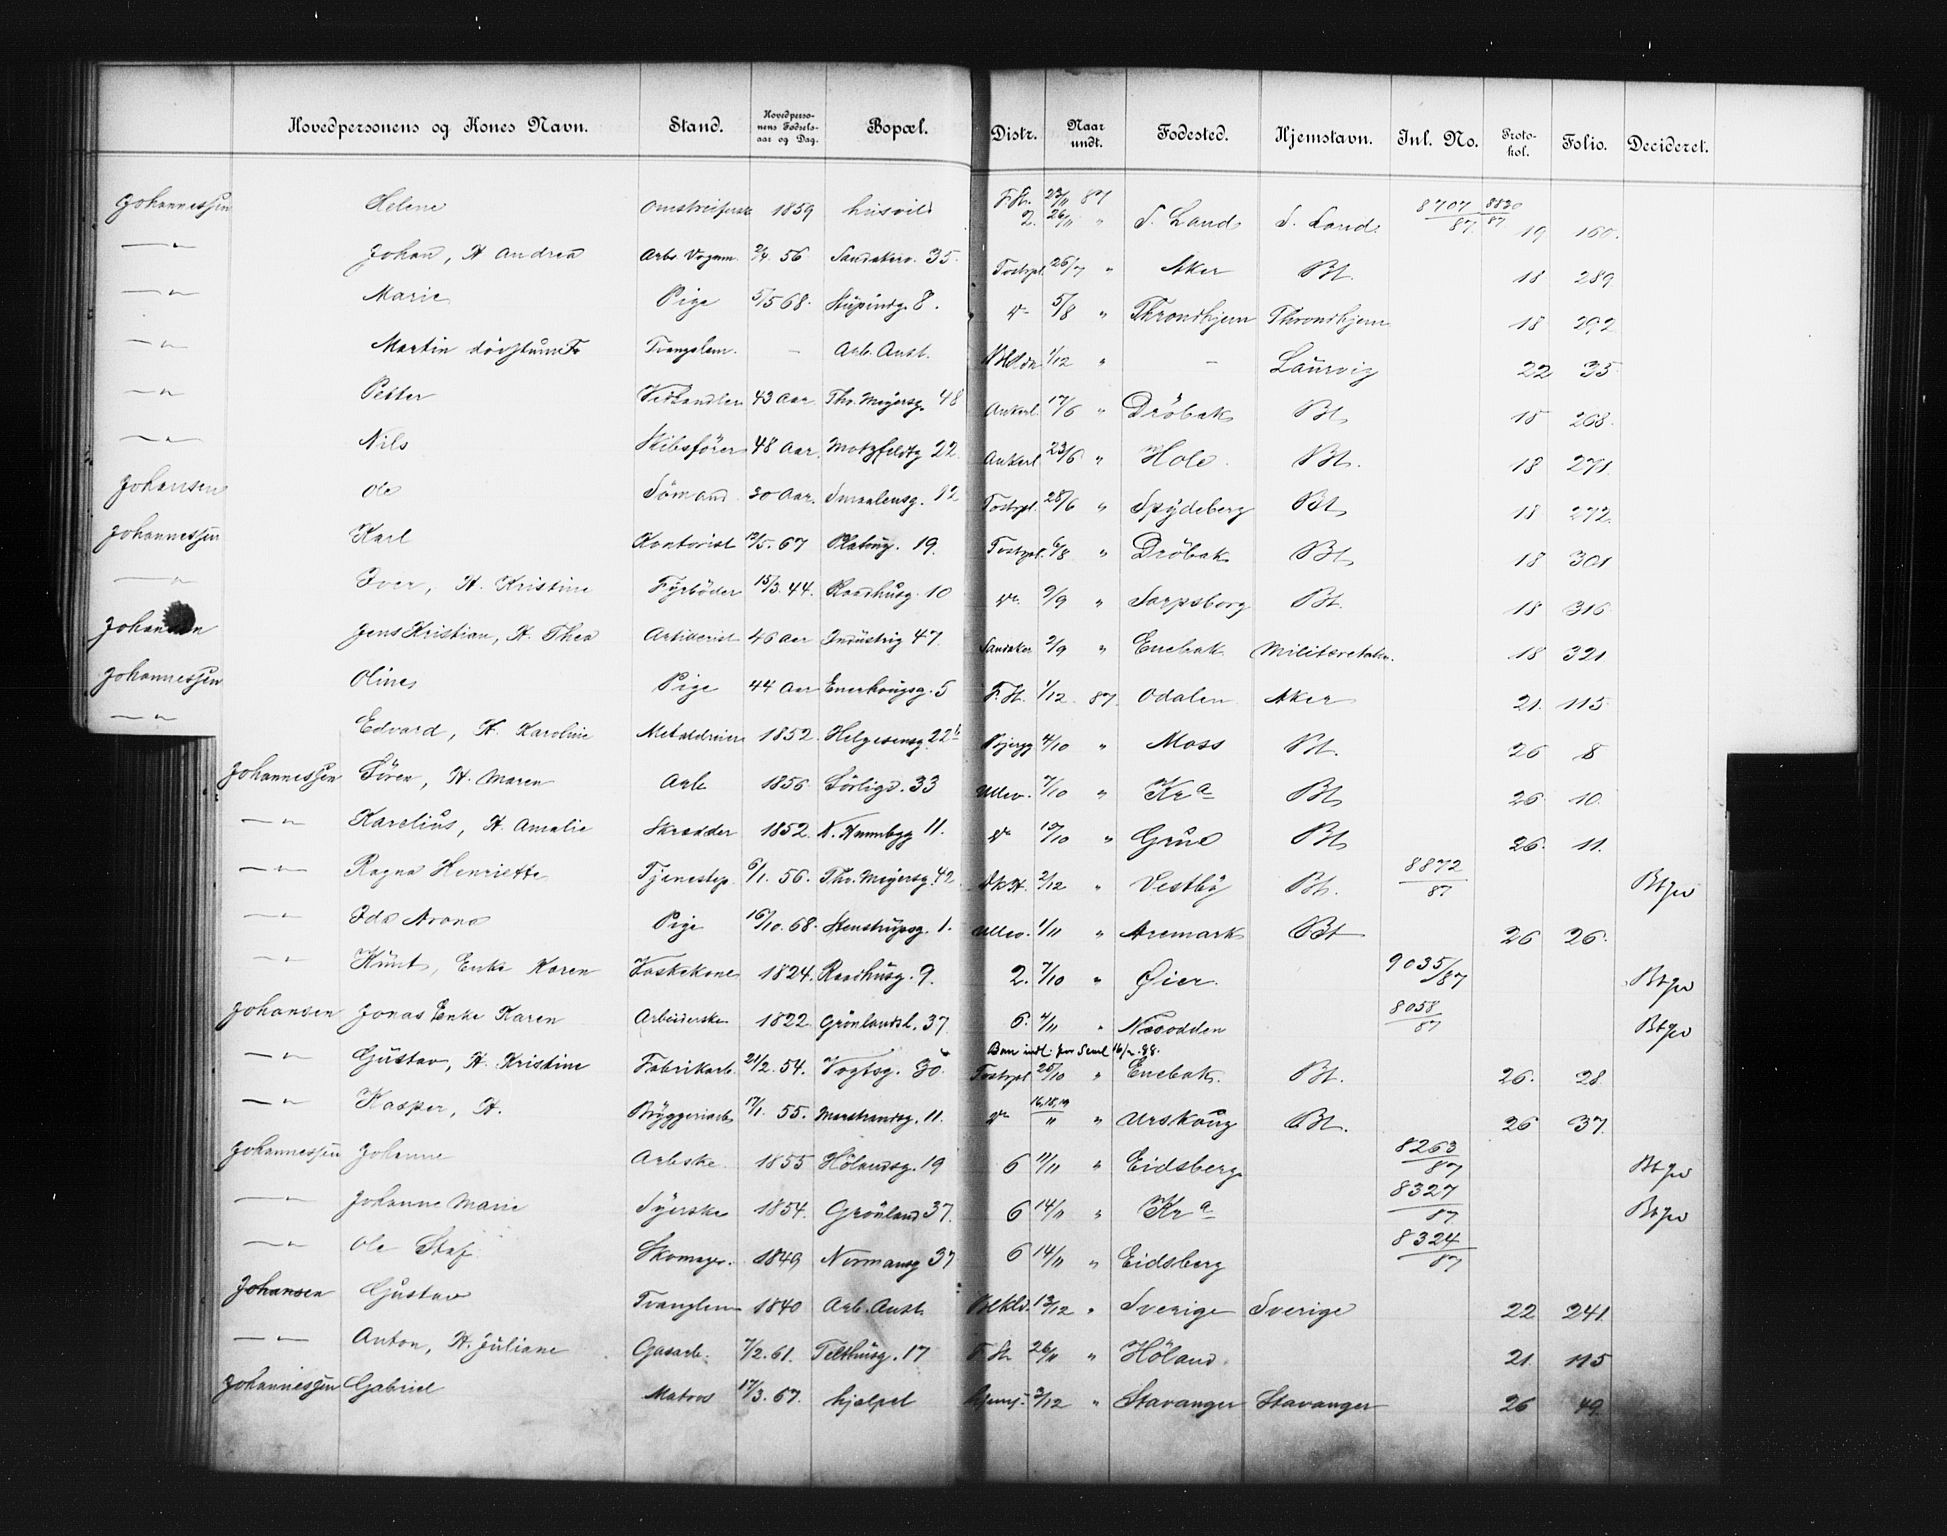 Hovedpersonens og Kones Navn. Stand. Hovedpersonens Fødselsaar og Dag. Bopæl. Distr. Naar undt. Fødested. Hjemstavn. Inl. No. Protokol. Folio. Decideret.
Johannessen Helene 1859 husvild F.H. 2. 23/11 87 26/11 " S. Land S. Land 8707/87 8820/87 19 160.
—"— Johan, H. Andrea Arb. Vognm. 56 Sandakerv. 35. Tostrpl. 26/7 " Aker Bt. 18 289
—"— Marie Pige 5/5 68. Stupindg. 8. 5/8 " Throndhjem Throndhjem 18 292
—"— Martin døvstum Tvangslem. — Arb. Anst. 1/12 " — Laurvig 22 35
—"— Petter Vedhandler 43 Aar Thv. Meyersg. 48 Ankerl. 17/6 " Drøbak Bt. 15 268.
—"— Nils Skibsfører 48 Aar. Motzfeldtg 22. Ankerl. 23/6 " Hole. Bt. 18 271.
Johansen Ole Sømand 30 Aar. Smaalensg. 12 Tostrpl. 28/6 " Spydeberg Bt. 18 272.
Johannessen Karl Kontorist 12/5. 67 Platoug. 19. Tostrpl. 6/8 " Drøbak Bt. 18 301
—"— Iver, H. Kristine Fyrbøder 15/3. 44. Raadhusg. 10 2/9 " Sarpsborg Bt. 18 316
Johansen Jens Kristian, H. Thea Artillerist 46 Aar Industrig 47. Sandaker 2/9 " Enebak 18 321
Johannessen Oline Pige 44 Aar Enerhougsg. 5 F.H. 1/12 87. Odalen Aker 21. 115
—"— Edvard, H. Karoline Metaldreier 1852. Helgesensg. 22b 4/10 " Moss Bt. 26 8
Johannessen Søren, H. Maren Arb 1856 Sørligd. 33 Ullev. 7/10 " Kra Bt. 26. 10.
—"— Karelius, H. Amalie Skrædder 1852. N. Hambgg 11. 10/10 " Grue Bt. 26. 11.
—"— Ragna Henriette Tjenestep. 6/1. 56. Thv. Meyersg. 42 2/12 " Vestby Bt. 8872/87
—"— Ida Pige 16/10. 68. Stenstrupsg. 1. Ullev. 1/11 " Aremark Bt 26 26.
—"— Knut, Enke Karen Vaskekone 1824. Raadhusg. 9. 2. 7/10 " Øier. 9035/87
Johansen Jonas Enke Karen Arbeiderske 1822. Grønlandsl. 37. 6. 4/11 " Næsodden 8058/87
—"— Gustav, H. Kristine Fabrikarb. 21/2. 54. Vogtsg. 30. Tostrpl 25/10 " Enebak. Bt. 26. 28.
—"— Kasper, H. Bryggeriarb 17/1. 55. Marstrandsg. 11. 16,18,19/11 " Urskoug Bt. 26 37.
Johannessen Johanne Arbske. 1855 Hølandsg. 19 6 11/11 " Eidsberg 8263/87
—"— Johanne Marie Syerske 1854. Grønland 37. 6 14/11 " Kra 8327/87
—"— Ole Skomager. 1849 Normansg 37 6 14/11 " Eidsberg 8324/87
Johansen Gustav Tvanglem 1840 Arb. Anst. 13/12 " Sverige Sverige 22 241.
—"— Anton, H. Juliane Gasarb. 7/2. 61. Telthusg. 17 F.H. 26/11 " Høland. 21. 115
Johannessen Gabriel Matros 17/3. 67. hjælpet 3/12 " Stavanger Stavanger 26 49.